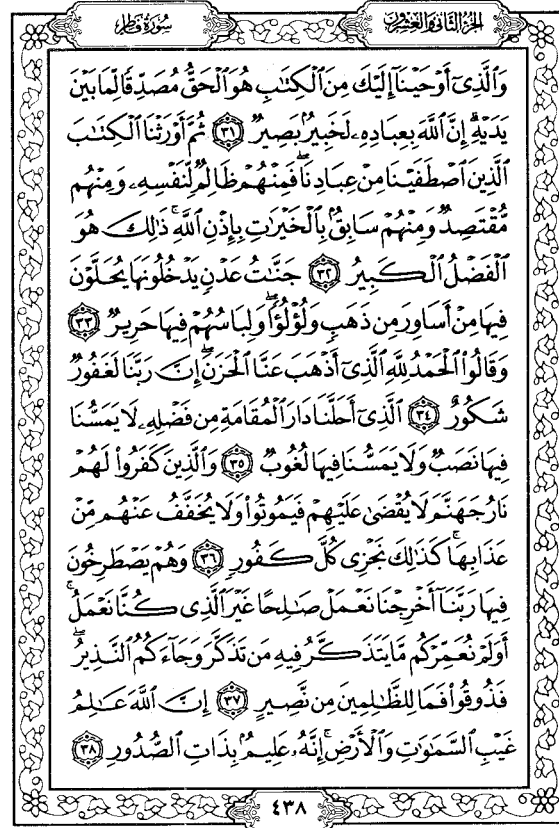 الجزء الثاني والعشرون
سورة فاطر
وَٱلَّذِىٓ أَوْحَيْنَآ إِلَيْكَ مِنَ ٱلْكِتَٰبِ هُوَ ٱلْحَقُّ مُصَدِّقًا لِّمَا بَيْنَ
يَدَيْهِ إِنَّ ٱللَّهَ بِعِبَادِهِۦ لَخَبِيرٌۢ بَصِيرٌ ٣١ ثُمَّ أَوْرَثْنَا ٱلْكِتَٰبَ
ٱلَّذِينَ ٱصْطَفَيْنَا مِنْ عِبَادِنَا فَمِنْهُمْ ظَالِمٌ لِّنَفْسِهِۦ وَمِنْهُم
مُّقْتَصِدٌ وَمِنْهُمْ سَابِقٌۢ بِٱلْخَيْرَٰتِ بِإِذْنِ ٱللَّهِ ۚ ذَٰلِكَ هُوَ
ٱلْفَضْلُ ٱلْكَبِيرُ ٣٢ جَنَّٰتُ عَدْنٍ يَدْخُلُونَهَا يُحَلَّوْنَ
فِيهَا مِنْ أَسَاوِرَ مِن ذَهَبٍ وَلُؤْلُؤًا ۖ وَلِبَاسُهُمْ فِيهَا حَرِيرٌ ٣٣
وَقَالُوا۟ ٱلْحَمْدُ لِلَّهِ ٱلَّذِىٓ أَذْهَبَ عَنَّا ٱلْحَزَنَ ۖ إِنَّ رَبَّنَا لَغَفُورٌ
شَكُورٌ ٣٤ ٱلَّذِىٓ أَحَلَّنَا دَارَ ٱلْمُقَامَةِ مِن فَضْلِهِۦ لَا يَمَسُّنَا
فِيهَا نَصَبٌ وَلَا يَمَسُّنَا فِيهَا لُغُوبٌ ٣٥ وَٱلَّذِينَ كَفَرُوا۟ لَهُمْ
نَارُ جَهَنَّمَ لَا يُقْضَىٰ عَلَيْهِمْ فَيَمُوتُوا۟ وَلَا يُخَفَّفُ عَنْهُم مِّنْ
عَذَابِهَا ۚ كَذَٰلِكَ نَجْزِى كُلَّ كَفُورٍ ٣٦ وَهُمْ يَصْطَرِخُونَ
فِيهَا رَبَّنَآ أَخْرِجْنَا نَعْمَلْ صَٰلِحًا غَيْرَ ٱلَّذِى كُنَّا نَعْمَلُ ۚ
أَوَلَمْ نُعَمِّرْكُم مَّا يَتَذَكَّرُ فِيهِ مَن تَذَكَّرَ وَجَآءَكُمُ ٱلنَّذِيرُ ۖ
فَذُوقُوا۟ فَمَا لِلظَّٰلِمِينَ مِن نَّصِيرٍ ٣٧ إِنَّ ٱللَّهَ عَٰلِمُ
غَيْبِ ٱلسَّمَٰوَٰتِ وَٱلْأَرْضِ ۚ إِنَّهُۥ عَلِيمٌۢ بِذَاتِ ٱلصُّدُورِ ٣٨
٤٣٨